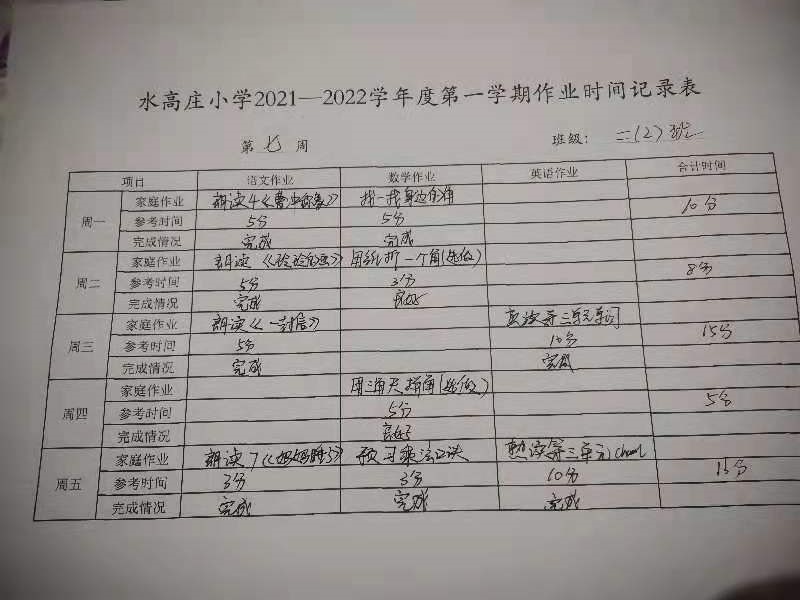 水高庄小学2021—2022学年度第一学期作业时间记录表
第 七 周 班级: 二(2)班
项目 语文作业 数学作业 英语作业 合计时间
周一 家庭作业 朗读4《曹冲称象》 找一找身边的角
参考时间 5分 5分 10分
完成情况 完成 完成
周二 家庭作业 朗读 用纸折一个角(选做)
参考时间 5分 3分 8分
完成情况 完成 良好
周三 家庭作业 朗读《一封信》 熟读第三单元单词
参考时间 5分 10分 15分
完成情况 完成 完成
周四 家庭作业 用三角尺拼角(选做)
参考时间 5分 5分
完成情况 良好
周五 家庭作业 朗读7《妈妈睡了》 预习乘法口诀 熟读第三单元chant
参考时间 3分 3分 10分
完成情况 完成 完成 完成